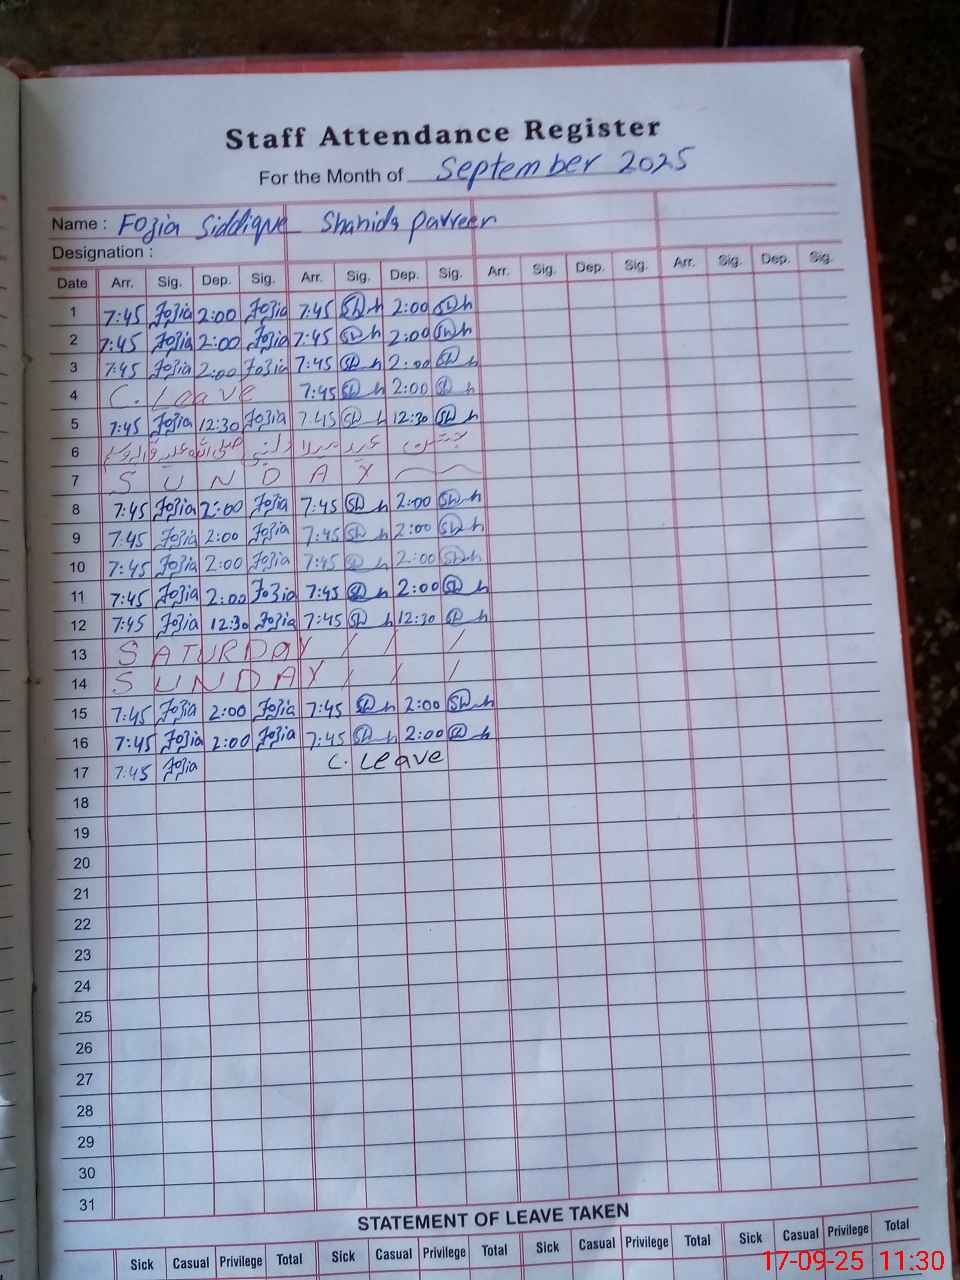 Staff Attendance Register
For the Month of September 2025
Name : Fozia Siddique Shahida Parveen
Designation :
Date Arr. Sig. Dep. Sig. Arr. Sig. Dep. Sig. Arr. Sig. Dep. Sig. Arr. Sig. Dep. Sig.
1 7:45 Fozia 2:00 Fozia 7:45 2:00
2 7:45 Fozia 2:00 Fozia 7:45 2:00
3 7:45 Fozia 2:00 Fozia 7:45 2:00
4 C. Leave 7:45 2:00
5 7:45 Fozia 12:30 Fozia 7:45 12:30
6 عید میلاد
7 SUNDAY
8 7:45 Fozia 2:00 Fozia 7:45 2:00
9 7:45 Fozia 2:00 Fozia 7:45 2:00
10 7:45 Fozia 2:00 Fozia 7:45 2:00
11 7:45 Fozia 2:00 Fozia 7:45 2:00
12 7:45 Fozia 12:30 Fozia 7:45 12:30
13 SATURDAY / / /
14 SUNDAY / / /
15 7:45 Fozia 2:00 Fozia 7:45 2:00
16 7:45 Fozia 2:00 Fozia 7:45 2:00
17 7:45 Fozia C. Leave
18
19
20
21
22
23
24
25
26
27
28
29
30
31
STATEMENT OF LEAVE TAKEN
Sick Casual Privilege Total Sick Casual Privilege Total Sick Casual Privilege Total Sick Casual Privilege Total
17-09-25 11:30